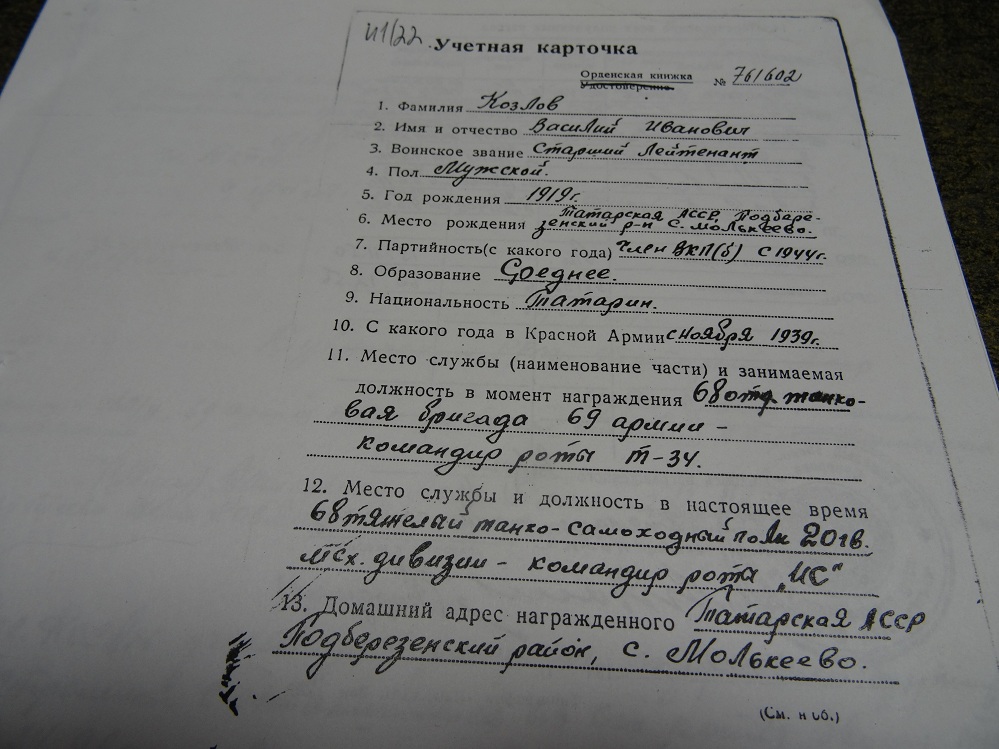 И1/22 Учетная карточка
Орденская книжка № 761602
Удостоверение
1. Фамилия Козлов
2. Имя и отчество Василий Иванович
3. Воинское звание Старший Лейтенант
4. Пол Мужской.
5. Год рождения 1919г.
6. Место рождения Татарская АССР, Подбере-
зенский р-н С. Молькеево.
7. Партийность(с какого года) член ВКП(б) с 1944г.
8. Образование Среднее.
9. Национальность Татарин.
10. С какого года в Красной Армии с ноября 1939г.
11. Место службы (наименование части) и занимаемая
должность в момент награждения 68 отд. танко-
вая бригада 69 армии -
командир роты Т-34.
12. Место службы и должность в настоящее время
68 тяжелый танко-самоходный полк 20 гв.
мех. дивизии - командир роты "ИС"
13. Домашний адрес награжденного Татарская АССР
Подберезенский район, с. Молькеево.
(См. н об.)